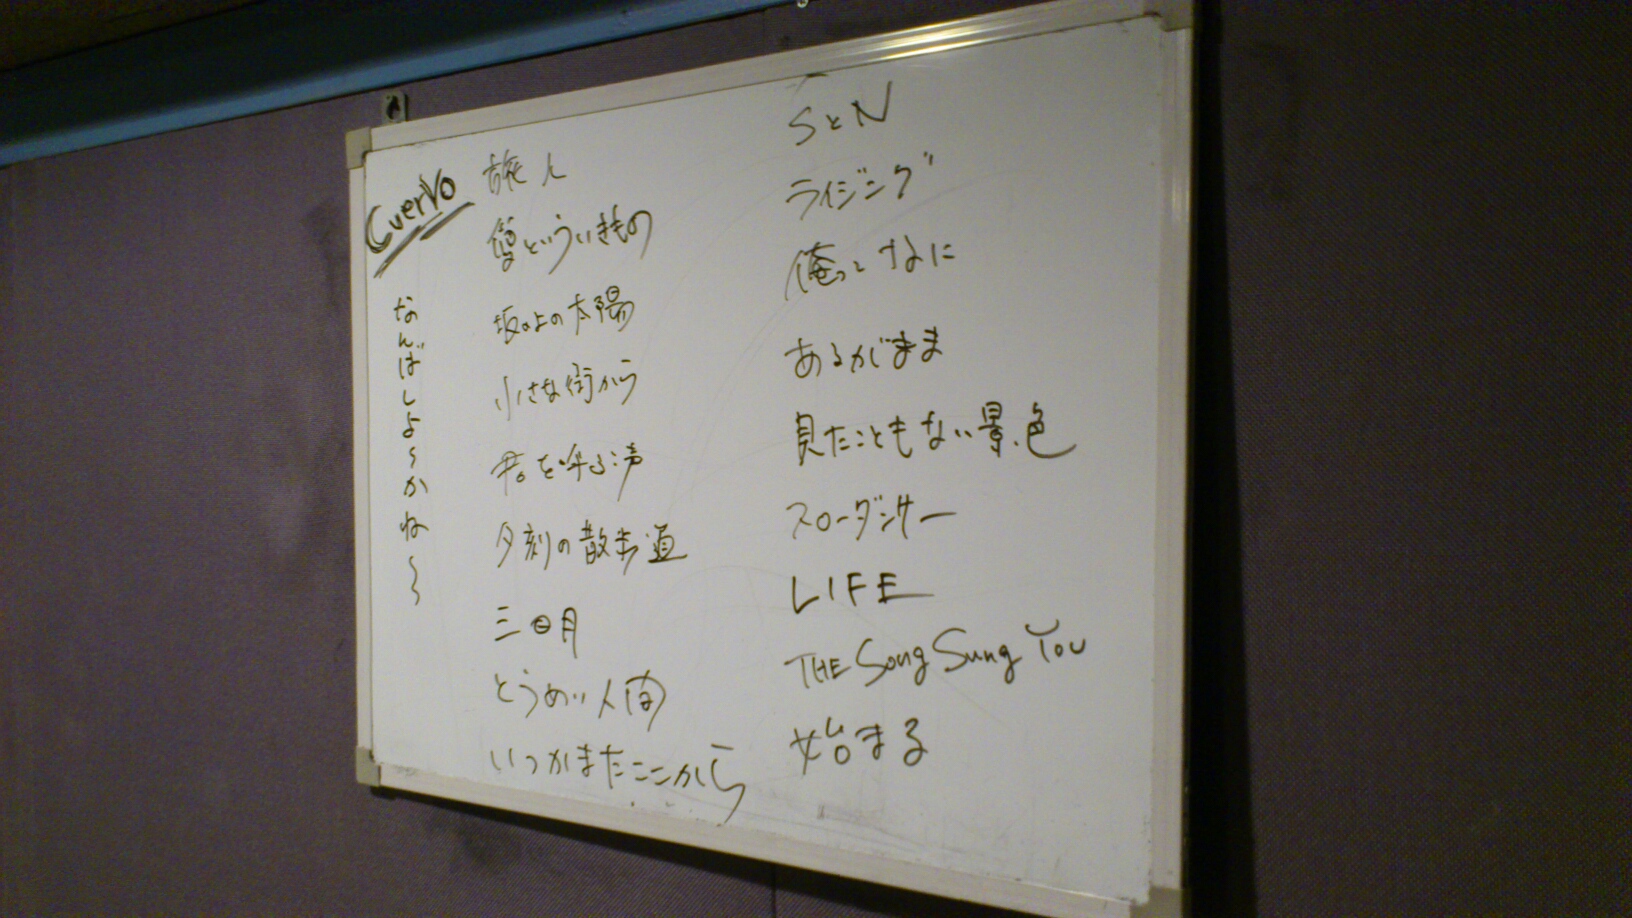 CuerVo
なんばしよ～かね～～
旅人
僕といういきもの
坂の上の太陽
小さな街から
君を呼ぶ声
夕刻の散歩道
三日月
とうめい人間
いつかまたここから
SとN
ライジング
俺ってなに
あるがまま
見たこともない景色
スローダンサー
LIFE
THE Song Sung You
始まる